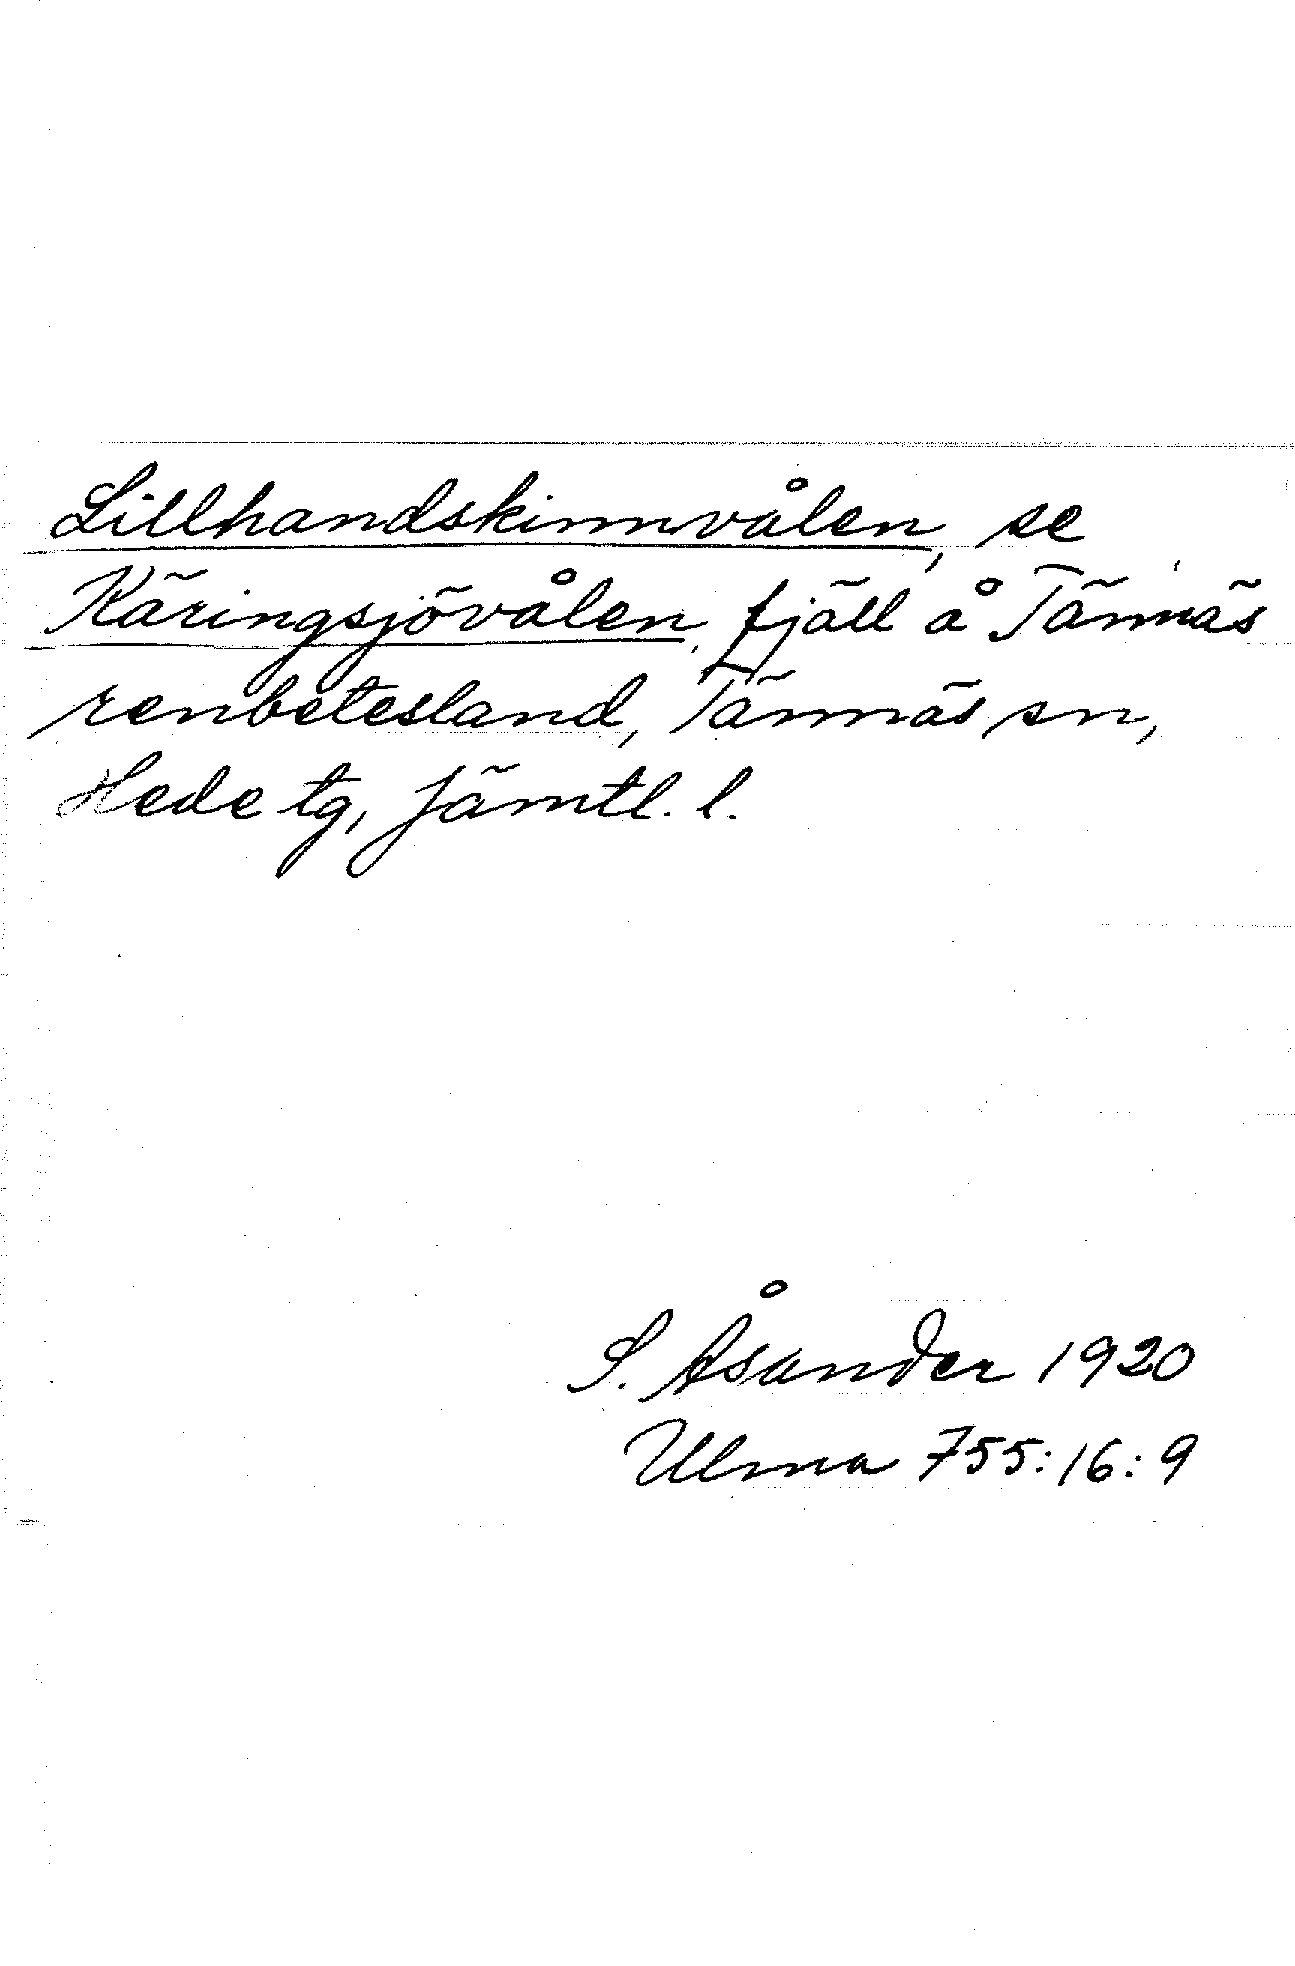 Lillhandskinnvålen, se
Käringsjövålen, fjäll å Tännäs
renbetesland, Tännäs sn,
Hede tg, Jämtl. l.
S. Åsander 1920
Ulma 755:16:9